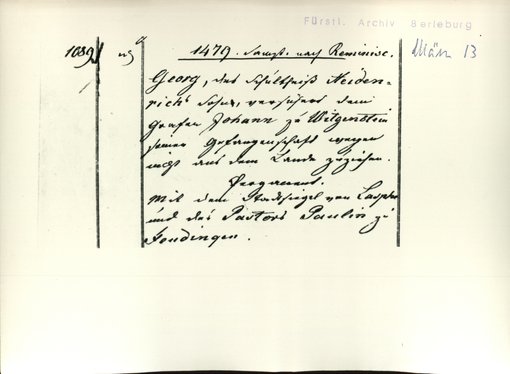 Fürstl. Archiv Berleburg
1089
1479. Sampst. nach Reminisc.
März 13
Georg, des Schultheiß Heiden-
rich's Sohn, versichert dem
Grafen Johann zu Witgenstein
seiner Gefangenschaft wegen
nicht aus dem Lande zu ziehen.
Pergament.
Mit dem Stadtsiegel von Laasphe
und des Pastors Paulin zu
Feudingen.